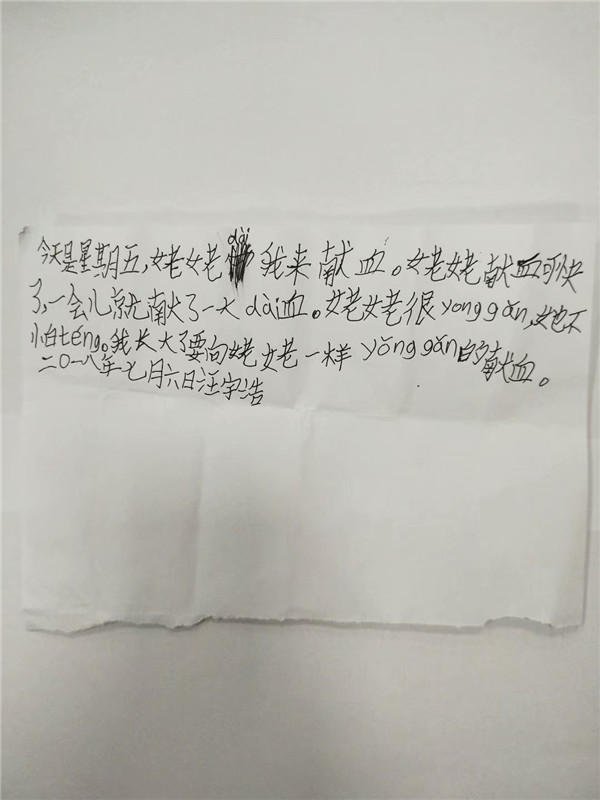 今天是星期五,姥姥dài我来献血。姥姥献血可快
了,一会儿就献了一大dài血。姥姥很yonggǎn,她不
怕téng。我长大了要向姥姥一样yǒnggǎn的献血。
二〇一八年七月六日汪宇浩